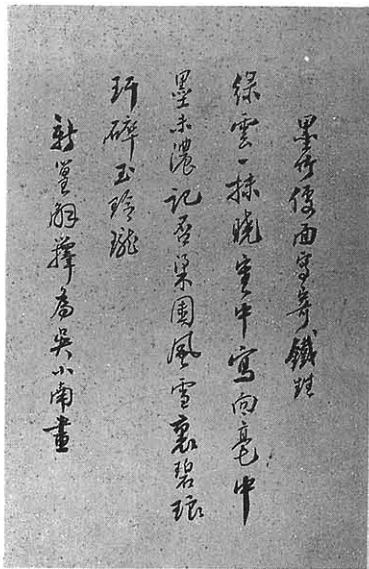 墨竹便面寄鐵生
綠雲一抹曉空中寫向亳中
墨未濃記否梁園風雪裏碧琅
玕碎玉玲瓏
新篁解籜為吳小南畫